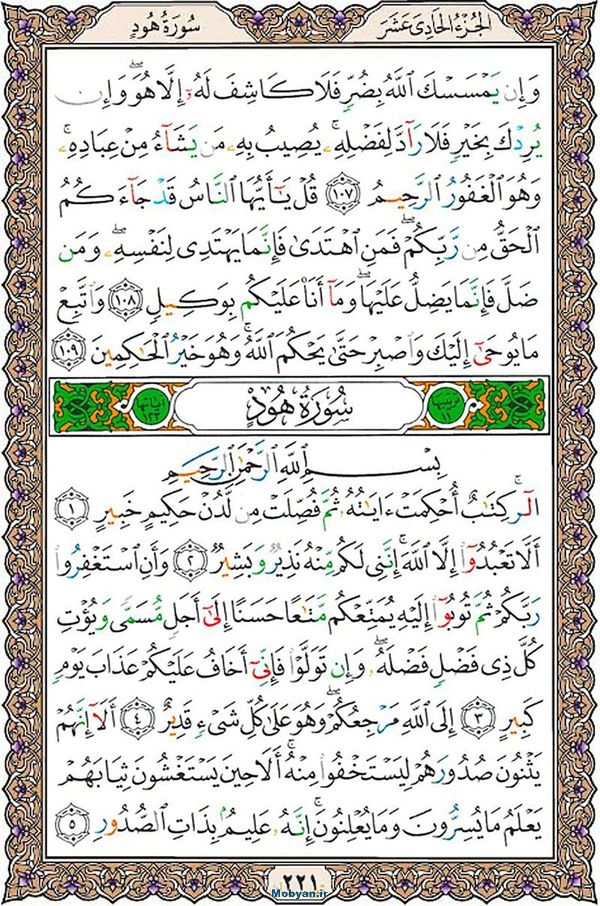 الجزء الحادي عشر
سورة هود
وَإِن يَمۡسَسۡكَ ٱللَّهُ بِضُرّٖ فَلَا كَاشِفَ لَهُۥٓ إِلَّا هُوَۖ وَإِن
يُرِدۡكَ بِخَيۡرٖ فَلَا رَآدَّ لِفَضۡلِهِۦۚ يُصِيبُ بِهِۦ مَن يَشَآءُ مِنۡ عِبَادِهِۦۚ
وَهُوَ ٱلۡغَفُورُ ٱلرَّحِيمُ ١٠٧ قُلۡ يَٰٓأَيُّهَا ٱلنَّاسُ قَدۡ جَآءَكُمُ
ٱلۡحَقُّ مِن رَّبِّكُمۡۖ فَمَنِ ٱهۡتَدَىٰ فَإِنَّمَا يَهۡتَدِي لِنَفۡسِهِۦۖ وَمَن
ضَلَّ فَإِنَّمَا يَضِلُّ عَلَيۡهَاۖ وَمَآ أَنَا۠ عَلَيۡكُم بِوَكِيلٖ ١٠٨ وَٱتَّبِعۡ
مَا يُوحَىٰٓ إِلَيۡكَ وَٱصۡبِرۡ حَتَّىٰ يَحۡكُمَ ٱللَّهُۚ وَهُوَ خَيۡرُ ٱلۡحَٰكِمِينَ ١٠٩
سُورَةُ هُودٍ
بِسۡمِ ٱللَّهِ ٱلرَّحۡمَٰنِ ٱلرَّحِيمِ
الٓرۚ كِتَٰبٌ أُحۡكِمَتۡ ءَايَٰتُهُۥ ثُمَّ فُصِّلَتۡ مِن لَّدُنۡ حَكِيمٍ خَبِيرٍ ١
أَلَّا تَعۡبُدُوٓاْ إِلَّا ٱللَّهَۚ إِنَّنِي لَكُم مِّنۡهُ نَذِيرٞ وَبَشِيرٞ ٢ وَأَنِ ٱسۡتَغۡفِرُواْ
رَبَّكُمۡ ثُمَّ تُوبُوٓاْ إِلَيۡهِ يُمَتِّعۡكُم مَّتَٰعًا حَسَنًا إِلَىٰٓ أَجَلٖ مُّسَمّٗى وَيُؤۡتِ
كُلَّ ذِي فَضۡلٖ فَضۡلَهُۥۖ وَإِن تَوَلَّوۡاْ فَإِنِّيٓ أَخَافُ عَلَيۡكُمۡ عَذَابَ يَوۡمٖ
كَبِيرٍ ٣ إِلَى ٱللَّهِ مَرۡجِعُكُمۡۖ وَهُوَ عَلَىٰ كُلِّ شَيۡءٖ قَدِيرٌ ٤ أَلَآ إِنَّهُمۡ
يَثۡنُونَ صُدُورَهُمۡ لِيَسۡتَخۡفُواْ مِنۡهُۚ أَلَا حِينَ يَسۡتَغۡشُونَ ثِيَابَهُمۡ
يَعۡلَمُ مَا يُسِرُّونَ وَمَا يُعۡلِنُونَۚ إِنَّهُۥ عَلِيمُۢ بِذَاتِ ٱلصُّدُورِ ٥
٢٢١
Mobyan.ir